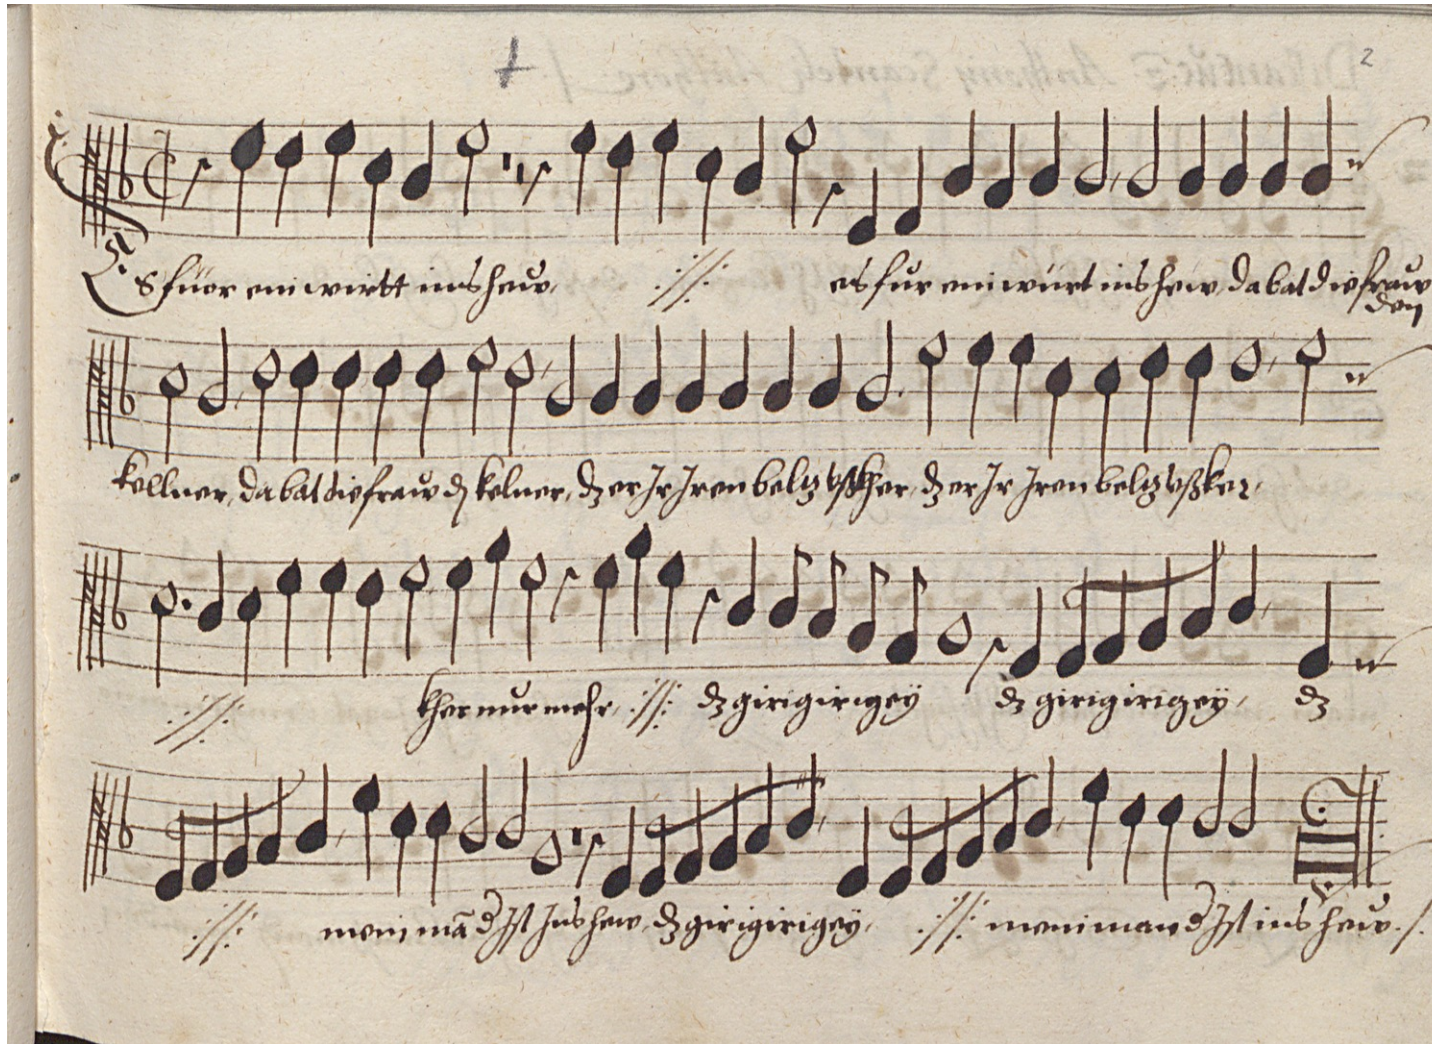 2
Es fuor ein wirtt ins heuw, es fur ein wurt ins hew, da bat die frauw den
kellner, da bat die frauw dz kelner, dz er Ir Iren beltz vßkher, dz er Ir Iren beltz vßker,
kher nur mehr, dz girigirigey dz girigirigey, dz
mein mã Ist Ins hew, dz girigirigey, mein man Ist ins heuw